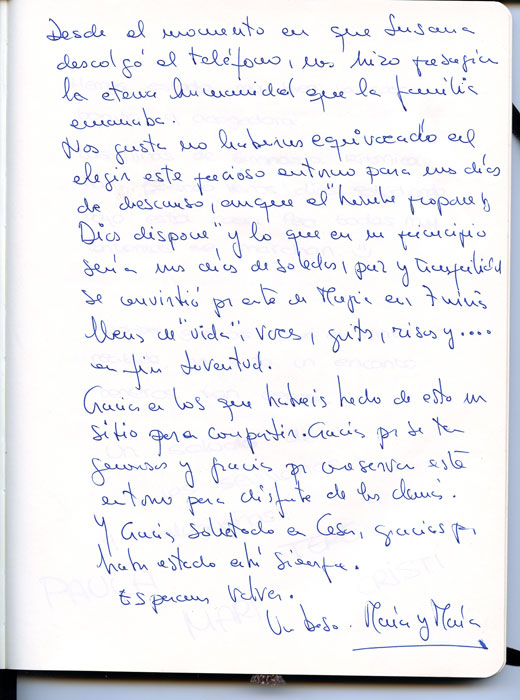 Desde el momento en que Susana
descolgó el teléfono, nos hizo presagiar
la eterna humanidad que la familia
emanaba.
Nos gusta no habernos equivocado en el
elegir este precioso entorno para unos días
de descanso, aunque el "hombre propone y
Dios dispone" y lo que en un principio
sería unos días de soledad, paz y tranquilidad
se convirtió por arte de Magia en 7 niños
llenos de "vida", voces, gritos, risas y....
en fin Juventud.
Gracias a los que habeis hecho de esto un
sitio para compartir. Gracias por ser tan
generosos y gracias por conservar este
entorno para disfrute de los demás.
Y Gracias sobretodo a Cesar, gracias por
haber estado ahí siempre.
Esperamos volver.
Un beso. María y María
PAULA
CRISTI